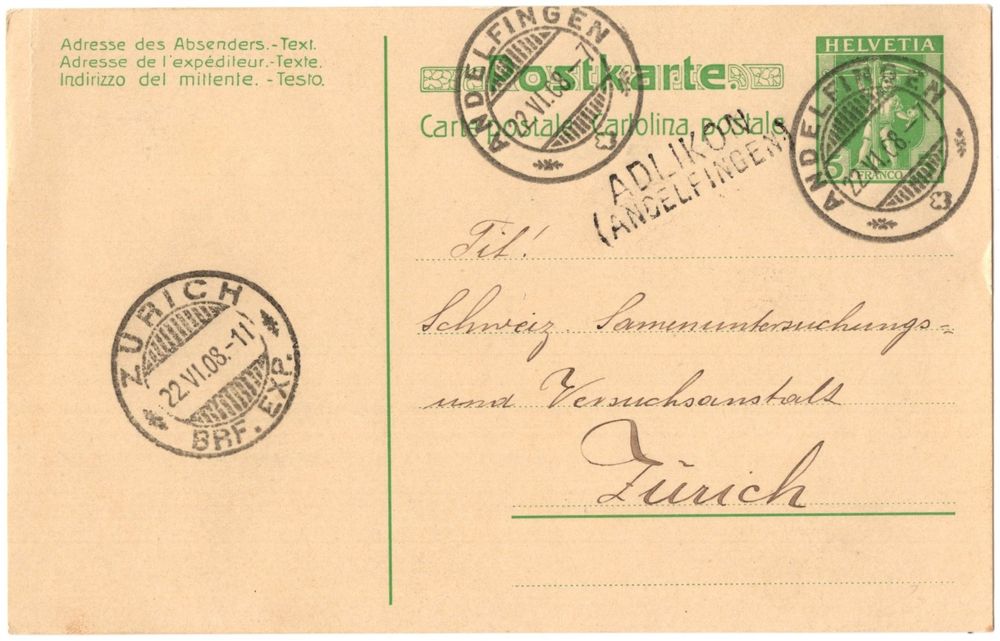 Adresse des Absenders.-Text.
Adresse de l'expéditeur.-Texte.
Indirizzo del mittente. -Testo.
Postkarte.
Carte postale. Cartolina postale.
HELVETIA
5
FRANCO
ANDELFINGEN
22.VI.08.-7
ANDELFINGEN
22.VI.08.-7
ADLIKON
(ANDELFINGEN)
Tit!
Schweiz. Samenuntersuchungs=
und Versuchsanstalt
Zürich
ZÜRICH
22.VI.08.-11
BRF. EXP.